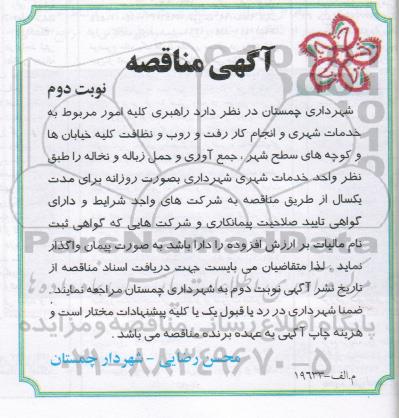 آگهی مناقصه
نوبت دوم
شهرداری چمستان در نظر دارد راهبری کلیه امور مربوط به
خدمات شهری و انجام کار رفت و روب و نظافت کلیه خیابان ها
و کوچه های سطح شهر ، جمع آوری و حمل زباله و نخاله را طبق
نظر واحد خدمات شهری شهرداری بصورت روزانه برای مدت
یکسال از طریق مناقصه به شرکت های واجد شرایط و دارای
گواهی تایید صلاحیت پیمانکاری و شرکت هایی که گواهی ثبت
نام مالیات بر ارزش افزوده را دارا باشد به صورت پیمان واگذار
نماید . لذا متقاضیان می بایست جهت دریافت اسناد مناقصه از
تاریخ نشر آگهی نوبت دوم به شهرداری چمستان مراجعه نمایند.
ضمنا شهرداری در رد یا قبول یک یا کلیه پیشنهادات مختار است و
هزینه چاپ آگهی به عهده برنده مناقصه می باشد .
محسن رضایی - شهردار چمستان
م.الف-۱۹۶۳۳